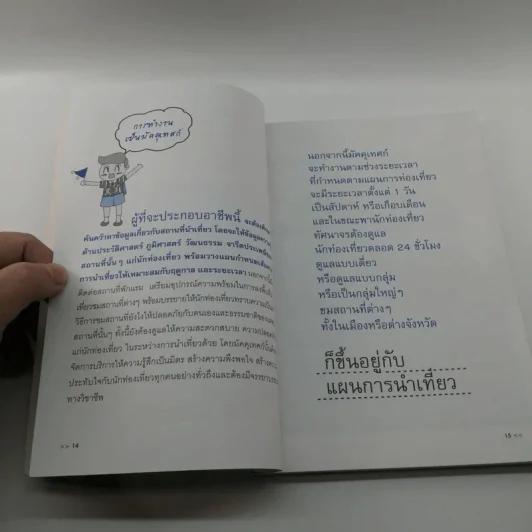 การทำงาน
เป็นมัคคุเทศก์
ผู้ที่จะประกอบอาชีพนี้ จะต้องศึกษา
ค้นคว้าหาข้อมูลเกี่ยวกับสถานที่นำเที่ยว โดยจะให้ข้อมูลความรู้
ด้านประวัติศาสตร์ ภูมิศาสตร์ วัฒนธรรม จารีตประเพณี
สถานที่นั้นๆ แก่นักท่องเที่ยว พร้อมวางแผนกำหนดเส้นทาง
การนำเที่ยวให้เหมาะสมกับฤดูกาล และระยะเวลา นอกจากนี้
ติดต่อสถานที่พักแรม เตรียมอุปกรณ์ความพร้อมในการ
เที่ยวชมสถานที่ต่างๆ พร้อมบรรยายให้นักท่องเที่ยวทราบความเป็น
วิธีการชมสถานที่ยังไงให้ปลอดภัยกับตนเองและธรรมชาติของ
สถานที่นั้นๆ ทั้งนี้ยังต้องดูแลให้ความสะดวกสบาย ความปลอดภัย
แก่นักท่องเที่ยว ในระหว่างการนำเที่ยวด้วย โดยมัคคุเทศก์นั้น
จัดการบริการให้ความรู้สึกเป็นมิตร สร้างความพึงพอใจ สร้าง
ประทับใจกับนักท่องเที่ยวทุกคนอย่างทั่วถึงและต้องมีจรรยาบรรณ
ทางวิชาชีพ
>> 14
นอกจากนี้มัคคุเทศก์
จะทำงานตามช่วงระยะเวลา
ที่กำหนดตามแผนการท่องเที่ยว
จะมีระยะเวลาตั้งแต่ 1 วัน
เป็นสัปดาห์ หรือเกือบเดือน
และในขณะพานักท่องเที่ยว
ทัศนาจรต้องดูแล
นักท่องเที่ยวตลอด 24 ชั่วโมง
ดูแลแบบเดี่ยว
หรือดูแลแบบกลุ่ม
หรือเป็นกลุ่มใหญ่ๆ
ชมสถานที่ต่างๆ
ทั้งในเมืองหรือต่างจังหวัด
ก็ขึ้นอยู่กับ
แผนการนำเที่ยว
15 <<